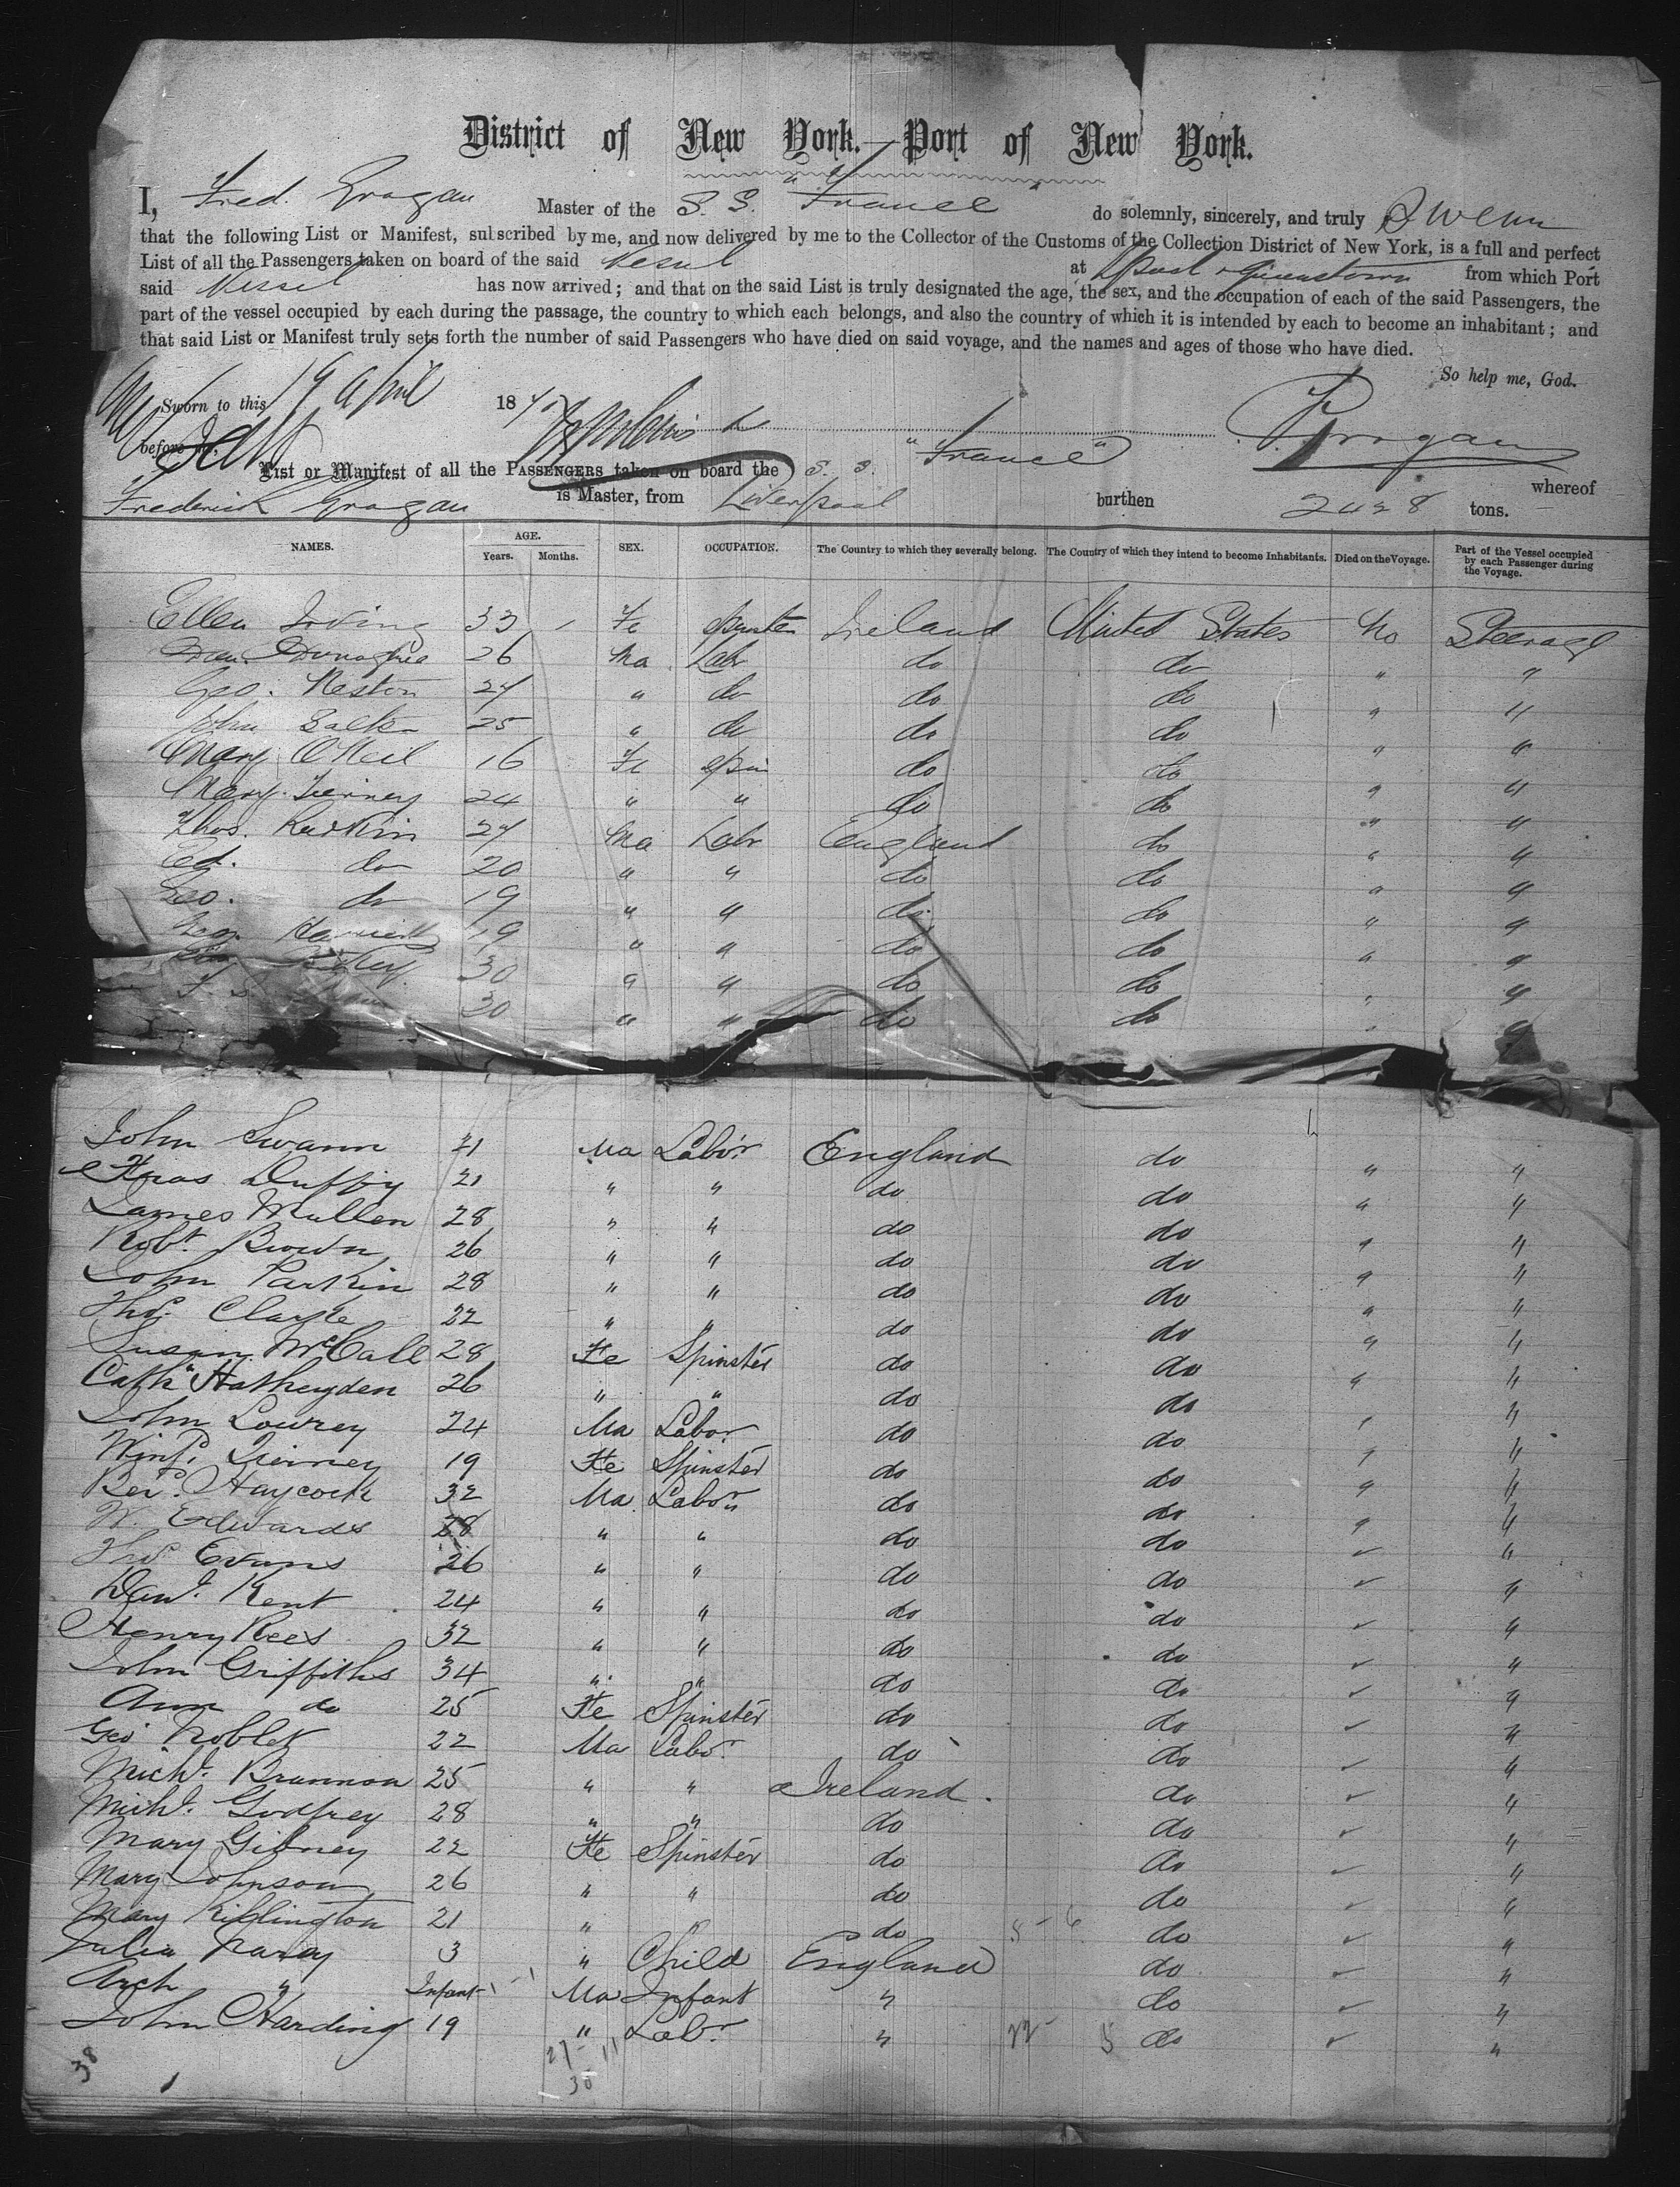 District of New York.—Port of New York.
I, Fred. Grogan Master of the S. S. "France" do solemnly, sincerely, and truly Swear
that the following List or Manifest, subscribed by me, and now delivered by me to the Collector of the Customs of the Collection District of New York, is a full and perfect
List of all the Passengers taken on board of the said Vessel at L'pool & Queenstown from which Port
said Vessel has now arrived; and that on the said List is truly designated the age, the sex, and the occupation of each of the said Passengers, the
part of the vessel occupied by each during the passage, the country to which each belongs, and also the country of which it is intended by each to become an inhabitant; and
that said List or Manifest truly sets forth the number of said Passengers who have died on said voyage, and the names and ages of those who have died.
So help me, God.
Sworn to this 19 April 18
before F Grogan
List or Manifest of all the PASSENGERS taken on board the S. S. "France" whereof
Frederick Grogan is Master, from Liverpool burthen 2428 tons.
NAMES. AGE. Years. Months. SEX. OCCUPATION. The Country to which they severally belong. The Country of which they intend to become Inhabitants. Died on the Voyage. Part of the Vessel occupied by each Passenger during the Voyage.
Ellen Irving 33 Fe Spinster Ireland United States No Steerage
Donaghue 26 Ma Labr do do " "
Geo. Neston 24 " do do do " "
John 25 " do do do " "
Mary O'Neil 16 Fe Spin do do " "
Mary Tierney 24 " " do do " "
Thos. Rudkin 24 Ma Labr England do " "
Ed. do 20 " " do do " "
Geo. do 19 " " do do " "
19 " " do do " "
30 " " do do " "
30 " " do do " "
John Swann 21 Ma Labor England do " "
Thos Duffy 21 " " do do " "
James Mullen 28 " " do do " "
Robt. Brown 26 " " do do " "
John Parkin 28 " " do do " "
Thos. Clarke 22 " " do do " "
Susan McCall 28 Fe Spinster do do " "
Cathn Hatheyden 26 " " do do " "
John Lowrey 24 Ma Labor do do " "
Winfd. Tierney 19 Fe Spinster do do " "
Benj. Haycock 32 Ma Labor do do " "
W. Edwards 28 " " do do " "
Thos. Evans 26 " " do do " "
Danl. Kent 24 " " do do " "
Henry Rees 32 " " do do " "
John Griffiths 34 " " do do " "
Ann do 25 Fe Spinster do do " "
Geo Noblet 22 Ma Labor do do " "
Michl. Brannon 25 " " Ireland do " "
Michl. Godfrey 28 " " do do " "
Mary Gibney 22 Fe Spinster do do " "
Mary Johnson 26 " " do do " "
Mary Kiplington 21 " " do do " "
Julia Naray 3 " Child England do " "
Arch " Infant Ma Infant " do " "
John Harding 19 " Labr " do " "
38